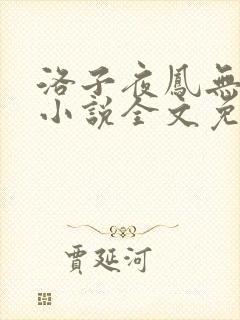 洛子夜鳳無
小說全文免
賈延河